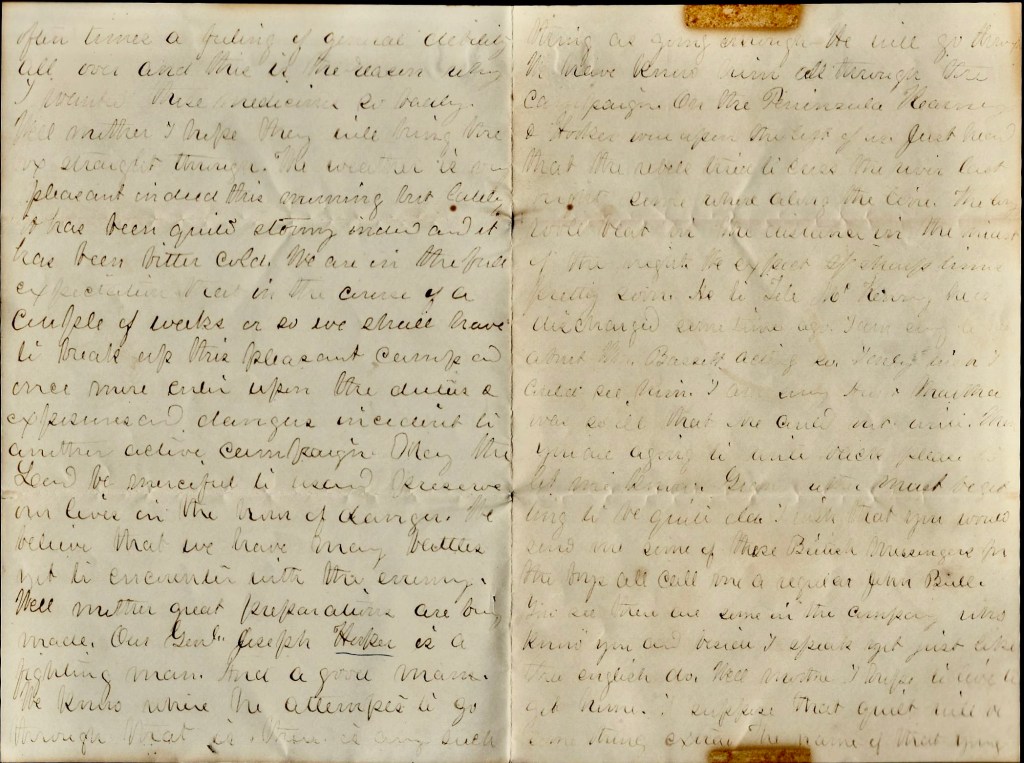 often times a feeling of general debility
all over and this is the reason why
I wanted these medicines so badly.
Well mother I hope they will bring the
box straight through. The weather is
pleasant indeed this morning but lately
it has been quite stormy indeed and it
has been bitter cold. We are in the full
expectation that in the course of a
couple of weeks or so we shall have
to break up this pleasant camp and
once more enter upon the duties &
exposures and dangers incident to
another active campaign May the
Lord be merciful to us and preserve
our lives in the hour of danger. We
believe that we have many battles
yet to encounter with the enemy.
Well mother great preparations are being
made. Our Genl. Joseph Hooker is a
fighting man. And a good man.
We know where he attempts to go
through that is if there is any such
thing as going through He will go through
We have known him all through the
campaign. On the Peninsula Kearney
& Hooker were upon the left of us. Just heard
that the rebels tried to cross the river last
night, some where along the line. The
roll beat in the distance in the midst
of the night. We expect sharp times
pretty soon. As to he was
discharged some time ago. I am sorry to
about Wm. Bassett acting so. I
could see him. I am sorry that Martha
was so ill that she could not write. When
you are going to write back please
let me know must be get
ting to be quite old. I wish that you would
send me some of those British Messengers for
the boys all call me a regular John Bull.
You see there are some in the company who
know you and beside I speak yet just like
the english do. Well mother I hope to live to
get home. I suppose that quilt will
some thing extra The name of that young